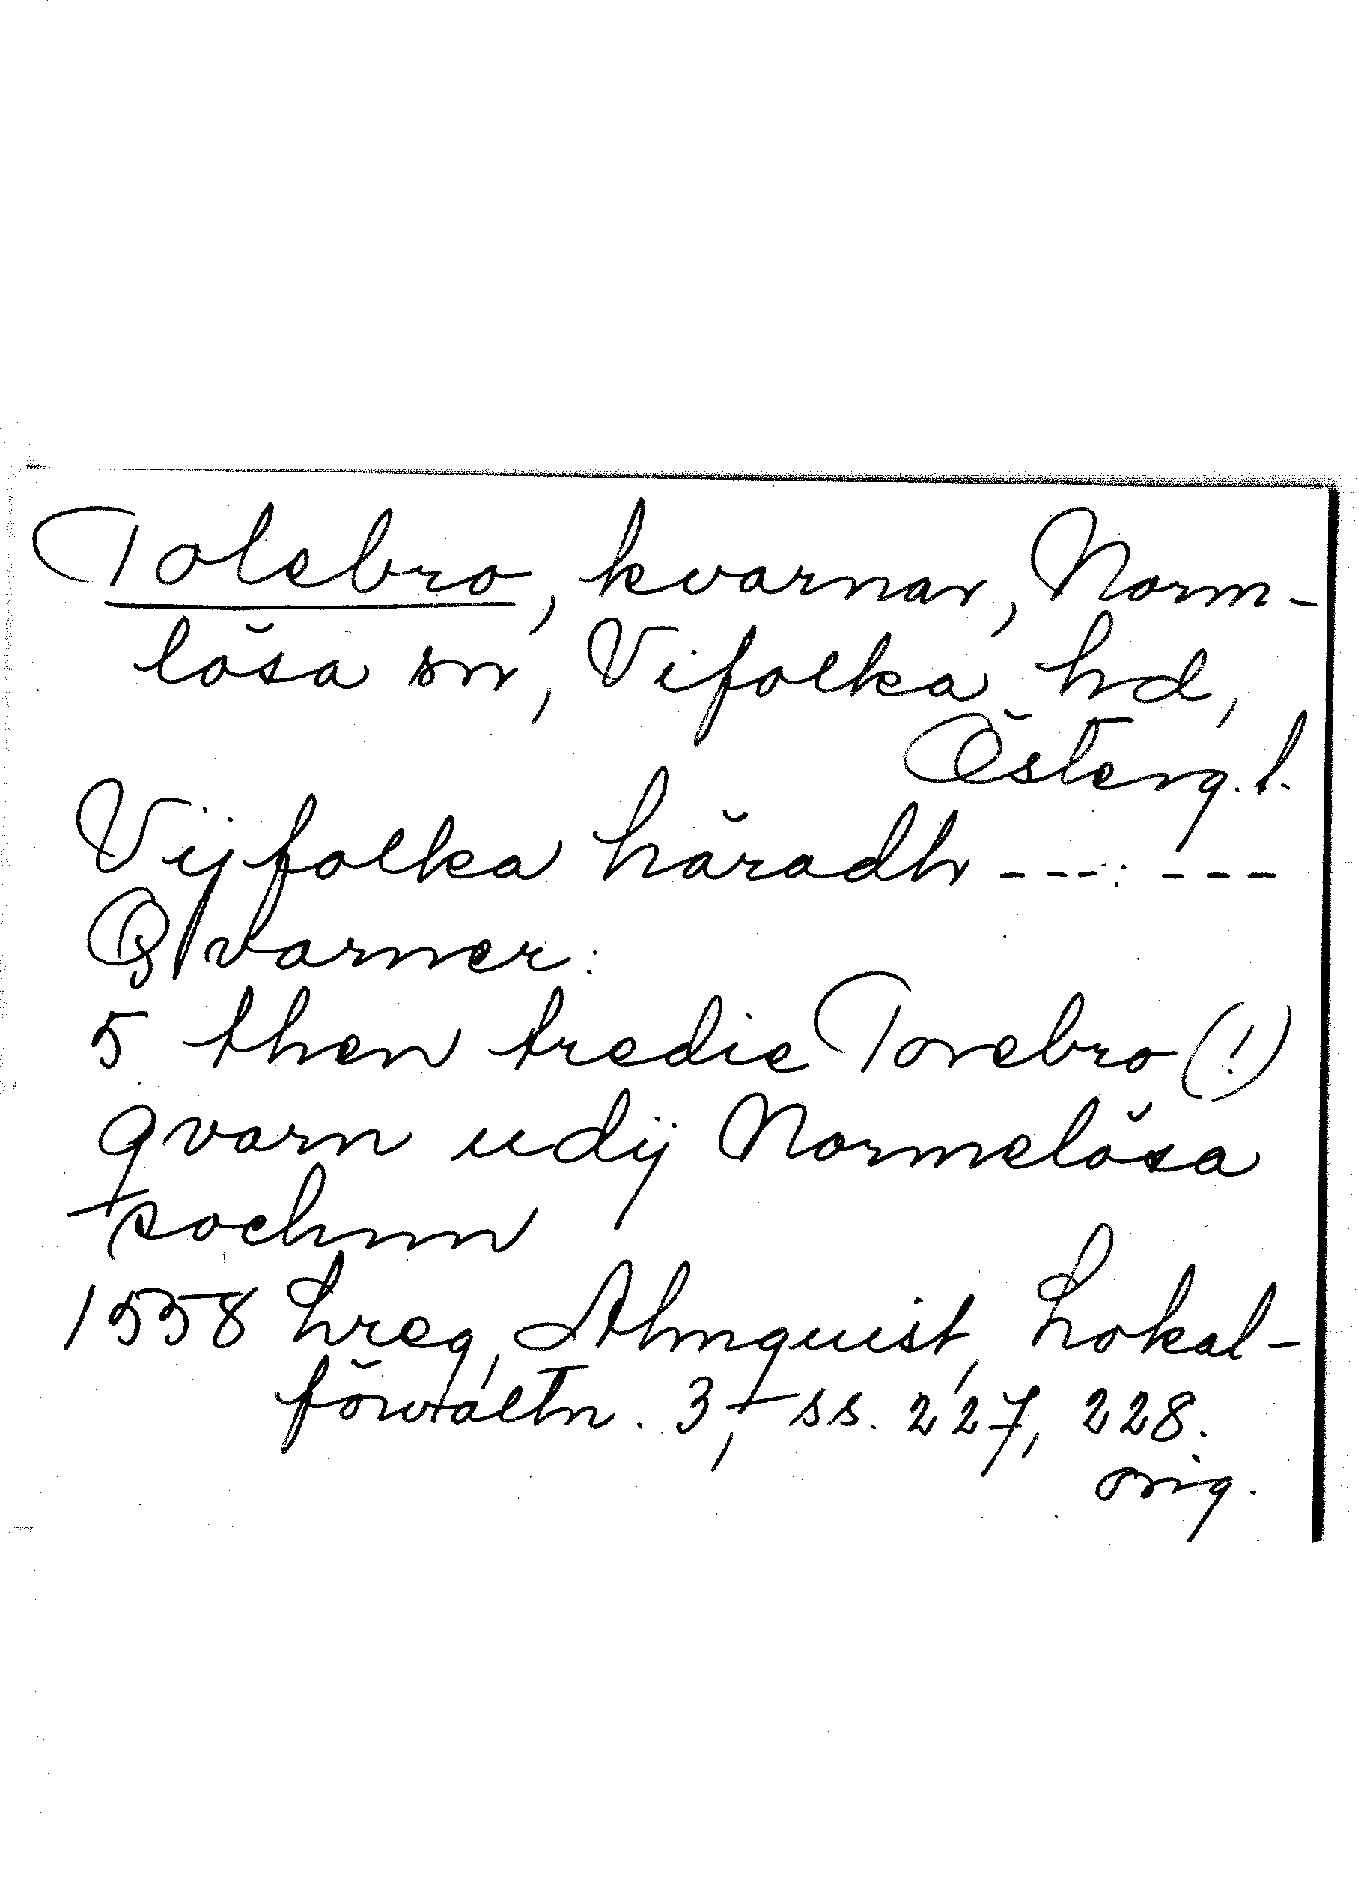 Tolebro, kvarnar, Norm-
lösa sn, Vifolka hd,
Österg.l.
Vijfolka häradh --- : ---
Qvarner:
5 then tredie Torebro (!)
qvarn udij Normelösa
sochnn
1558 hreg, Almquist, Lokal-
förvaltn. 3, ss. 227, 228.
orig.